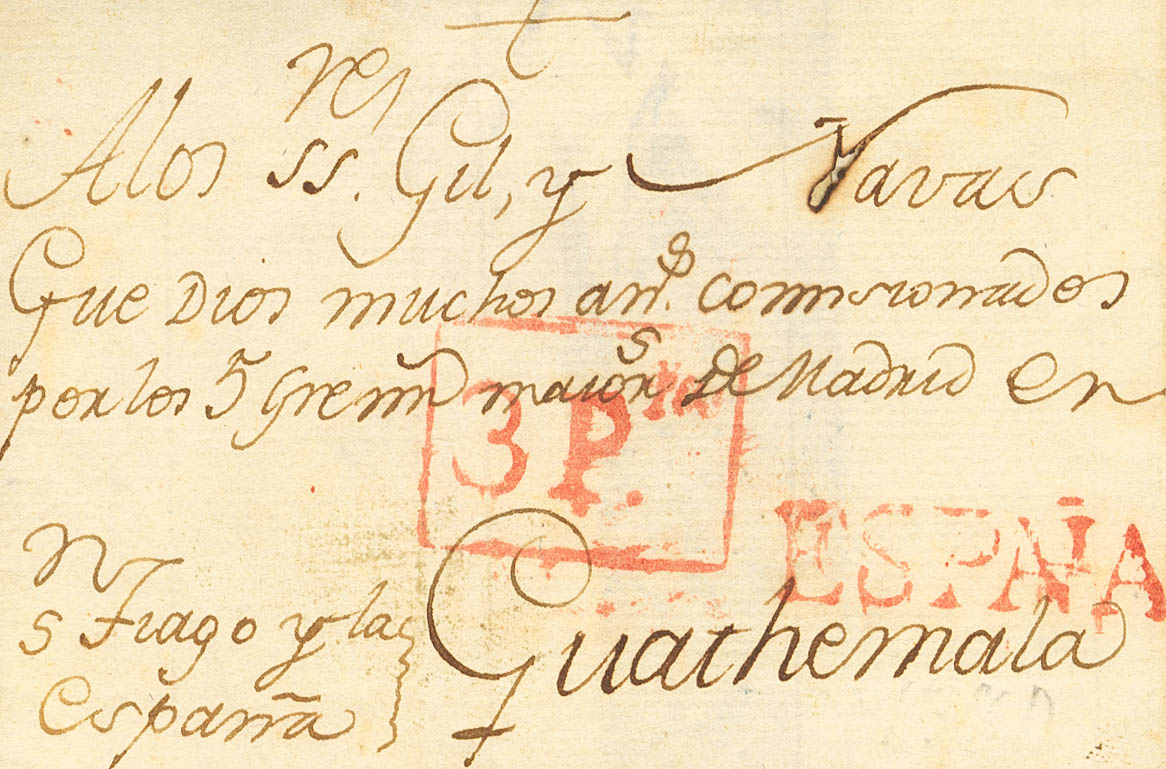 A los SS.res Gil, y Navas
Gue Dios muchos an.s Comisionados
por los 5 Grem.s maior.s de Madrid en
3 P.tas
ESPAÑA
Guathemala
S Tiago y la
España